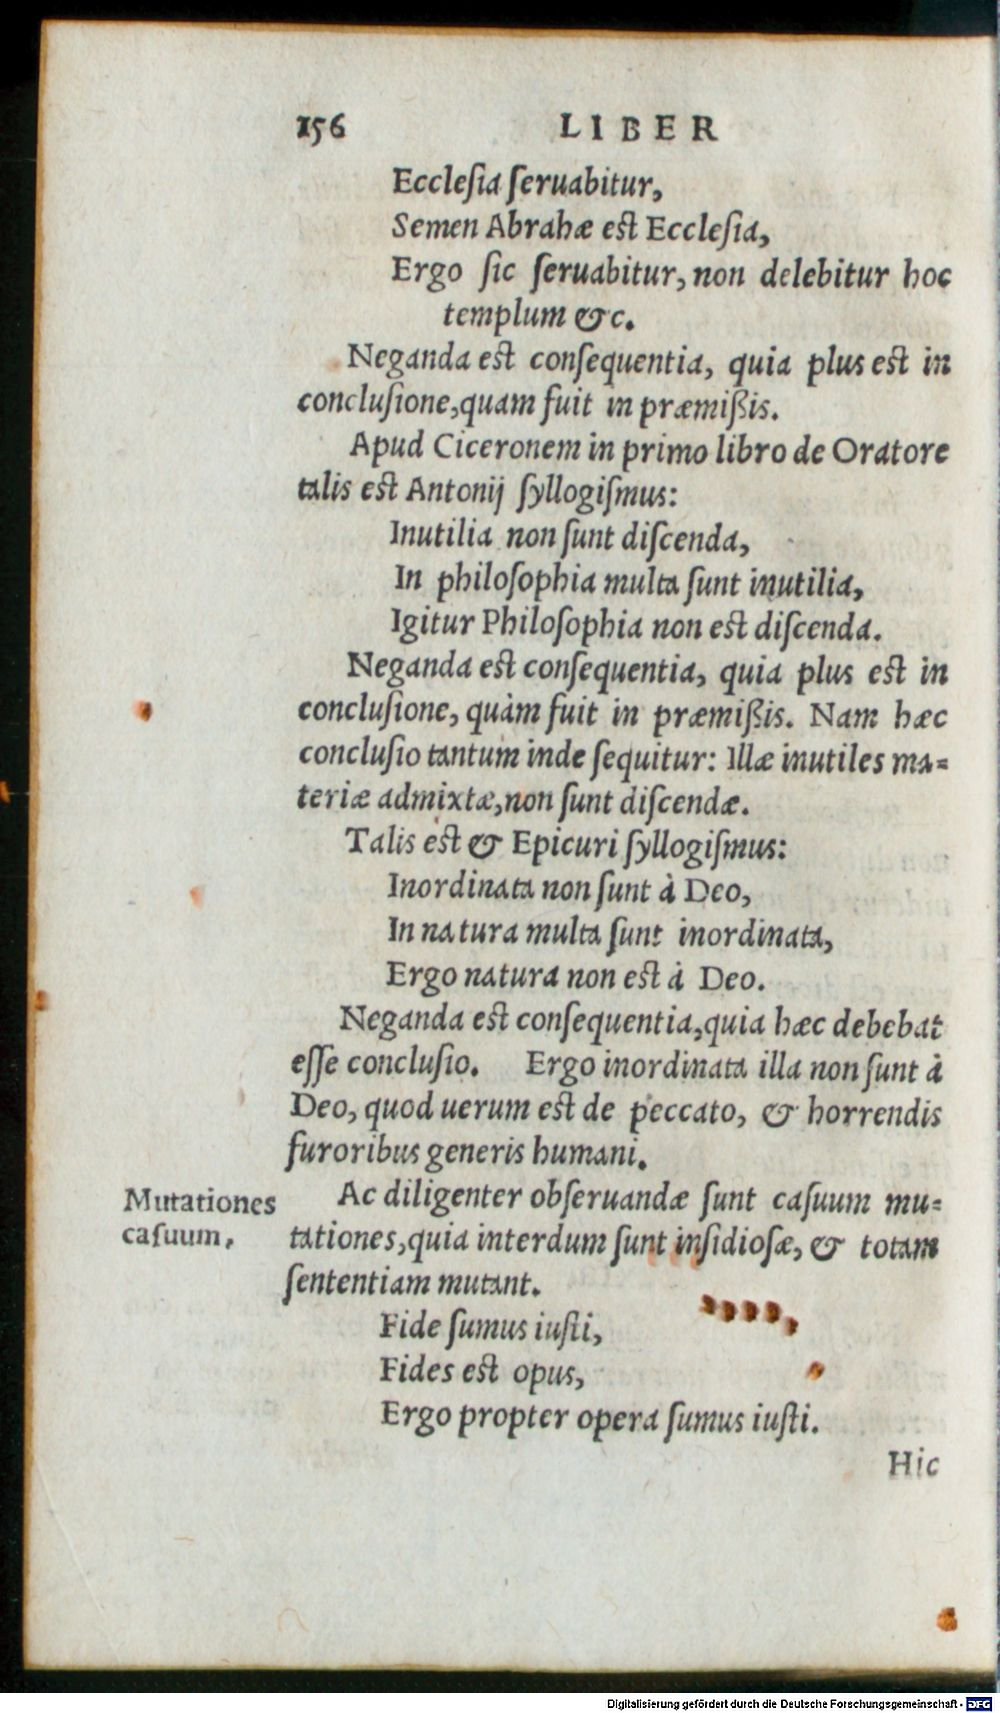 156 LIBER
Ecclesia seruabitur,
Semen Abrahæ est Ecclesia,
Ergo sic seruabitur, non delebitur hoc
templum &c.
Neganda est consequentia, quia plus est in
conclusione,quam fuit in præmißis.
Apud Ciceronem in primo libro de Oratore
talis est Antonij syllogismus:
Inutilia non sunt discenda,
In philosophia multa sunt inutilia,
Igitur Philosophia non est discenda.
Neganda est consequentia, quia plus est in
conclusione, quàm fuit in præmißis. Nam hæc
conclusio tantum inde sequitur: Illæ inutiles ma=
teriæ admixtæ,non sunt discendæ.
Talis est & Epicuri syllogismus:
Inordinata non sunt à Deo,
In natura multa sunt inordinata,
Ergo natura non est à Deo.
Neganda est consequentia,quia hæc debebat
esse conclusio. Ergo inordinata illa non sunt à
Deo, quod uerum est de peccato, & horrendis
furoribus generis humani.
Mutationes
casuum.
Ac diligenter obseruandæ sunt casuum mu=
tationes,quia interdum sunt insidiosæ, & totam
sententiam mutant.
Fide sumus iusti,
Fides est opus,
Ergo propter opera sumus iusti.
Hic
Digitalisierung gefördert durch die Deutsche Forschungsgemeinschaft - DFG